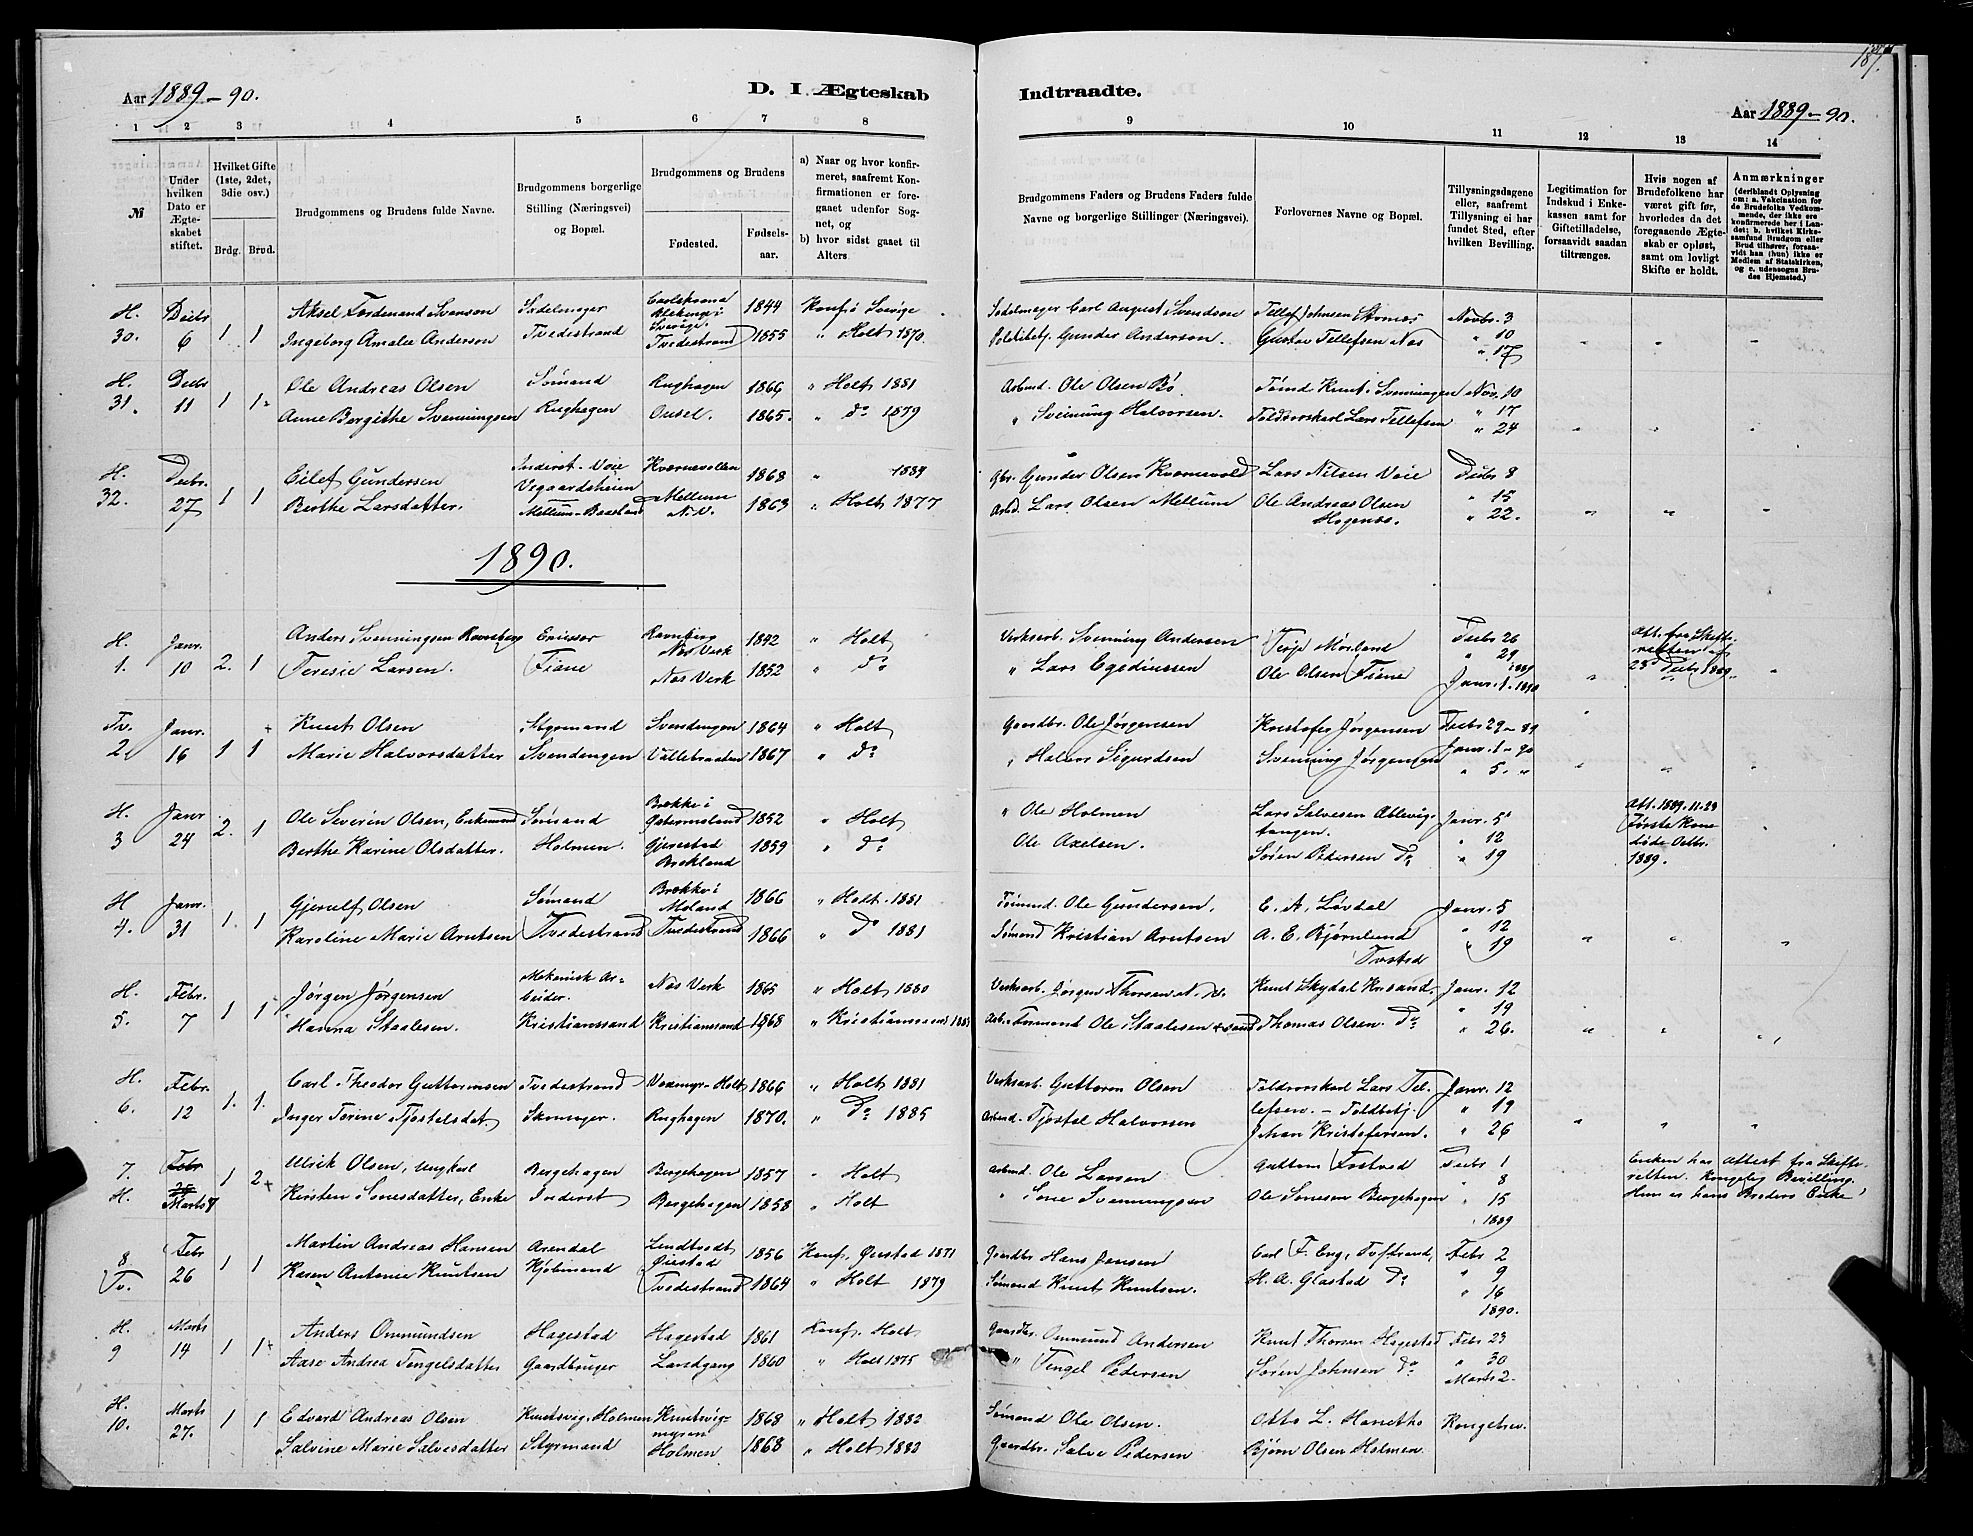 187.
Aar 1889-90.
D. I. Ægteskab
Indtraadte.
Aar 1889-90.
1 2 3 4 5 6 7 8
9 10 11 12 13 14
№
Under hvilken Dato er Ægteskabet stiftet.
Hvilket Gifte (1ste, 2det, 3die osv.)
Brdg. Brud.
Brudgommens og Brudens fulde Navne.
Brudgommens borgerlige Stilling (Næringsvei) og Bopæl.
Brudgommens og Brudens
Fødested.
Fødselsaar.
a) Naar og hvor konfirmeret, saafremt Konfirmationen er foregaaet udenfor Sognet, og
b) hvor sidst gaaet til Alters.
Brudgommens Faders og Brudens Faders fulde Navne og borgerlige Stillinger (Næringsvei).
Forlovernes Navne og Bopæl.
Tillysningsdagene eller, saafremt Tillysning ei har fundet Sted, efter hvilken Bevilling.
Legitimation for Indskud i Enkekassen samt for Giftetilladelse, forsaavidt saadan tiltrænges.
Hvis nogen af Brudefolkene har været gift før, hvorledes da det foregaaende Ægteskab er opløst, samt om lovligt Skifte er holdt.
Anmærkninger
(deriblandt Oplysning om: a. Vakcination for de Brudefolks Vedkommende, der ikke ere konfirmerede her i Landet; b. hvilket Kirkesamfund Brudgom eller Brud tilhører, forsaavidt han (hun) ikke er Medlem af Statskirken, og c. udensogns Brudes Hjemsted.)
H. Decbr Aksel Ferdenand Svenson Sadelmager Carlskrona Blekinge i Sverige. 1844 Konf. i Sverige Sadelmager Carl August Svendson Tellef Johnsen Novbr. 3
30. 6 1 1 Ingeborg Amalie Anderson Tvedestrand Tvedestrand 1855 " Holt 1870. Gunder Anderson. Gustav Tellefsen Næs " 10
" 17
H. Decbr Ole Andreas Olsen Sømand Rughagen 1866 " Holt 1881 Arbmd. Ole Olsen Bø Tømd Knut Svenningsen Nov. 10
31. 11 1 1 Anne Bergithe Svenningsen Rughagen Ousel. 1865. " do 1879 " Sveinung Halvorsen. Toldrorskarl Lars Tellefsen " 17
" 24
H. Decbr. Eilef Gundersen Inderst-Voie Vegaardsheien Kvernevollen 1868 " 1884 Gbr. Gunder Olsen Kvernevold Lars Nilsen Voie Decbr 8
32. 27 1 1 Berthe Larsdatter. Mellum-Baasland Mellum N.V. 1863 " Holt 1877 Arbd. Lars Olsen Mellum Ole Andreas Olsen " 15
" 22.
1890.
H. Janr. Anders Svenningsen Ravneberg Ravneberg Næs Verk 1842 " Holt Verksarb. Svenning Andersen Terje Mørland Decbr 26 Att. fra Skifte-
1. 10 2. 1 Teresie Larsen. Fiane Næs Verk 1852 " do " Lars Egediussen Ole Olsen Fiane " 29 1889 retten af
Janr. 1. 1890 Decbr 1889.
Tv. Janr. Knut Olsen Styrmand Svendengen 1864 " Holt Gaardbr. Ole Jørgensen Kristofer Jørgensen Decbr 29-89
2. 16 1 1 Marie Halvorsdatter Svendengen Vallebraaten 1867 " do " Halvor Sigurdsen Svenning Jørgensen Janr. 1-90
" 5. "
H. Janr Ole Severin Olsen, Enkemand Sømand Brække i Østermoland 1852 " Holt " Ole Holmen Lars Salvesen Ablevigtangen. Janr. 5 Att. 1889.11.29
3 24 2. 1 Berthe Karine Olsdatter. Holmen. Gjerestad Brokland 1859 " do Ole Axelsen. Søren Pedersen do " 12 Første Kone
" 19 døde Octbr. 1889.
H Janr. Gjerulf Olsen Sømand Brække i Moland 1866 " Holt. 1881 Tømmd. Ole Gundersen. E. A. Løvdal Janr. 5
4. 31 1. 1 Karoline Marie Arntsen Tvedestrand Tvedestrand 1866 " do 1881 Sømand Kristian Arntsen A. E. Bjørnlund " 12
Tvstrd " 19
H. Febr. Jørgen Jørgensen Mekanisk Arbeider. Næs Verk 1865 " Holt 1880 Verksarb. Jørgen Thorsen N.V. Knut Skydal Krisand. Janr. 12
5. 7 1 1 Hanna Staalesen. Kristianssand Kristianssand 1868 " Kristianssand Tømmand Ole Staalesen Thomas Olsen do " 19
" 26.
H. Febr. Carl Theodor Guttormsen Tvedestrand Voxmyr-Holt 1866 " Holt 1881 Verksarb. Guttorm Olsen Toldrorskarl Lars Tel- Janr. 12
6. 12 1. 1. Inger Torine Tjøstelsdat. Skomager. Rughagen 1870. " do 1885 Arbmd. Tjøstel Halvorsen lefsen. - Toldbetj. " 19
Johan Kristofersen. " 26
7. Febr Ulrik Olsen, Ungkarl Bergehagen Bergehagen 1857 " Holt Arbmd. Ole Larsen Guttorm Fostved Decbr 1 Enken har Attest fra Skifte-
H. Marts 7 1 2 Kirsten Sonesdatter, Enke Inderst Bergehagen 1858 " Holt " Sone Svenningsen Ole Sonesen Bergehagen " 8 retten. Kongelig Bevilling.
" 15 Hun er hans Broders Enke
1889
8 Febr Martin Andreas Hansen Arendal Øiestad 1856 Konf. Øiestad 1871 Gaardbr Hans Jensen Carl F. Eng, Tvstrand, Febr 2
Tv. 26 1 1 Karen Antonie Knutsen Kjøbmand Tvedestrand 1864 " Holt 1879 Sømand Knut Knutsen. H. A. Glastad do " 9
" 16
1890.
H. Marts Anders Ommundsen Hagestad Hagestad 1861 Konf. Holt Gaardbr. Ommund Andersen Knut Thorsen Hagestad Febr 23
9 14 1 1 Aase Andrea Tengelsdatter Gaardbruger Landgang 1860 " Holt 1875 " Tengel Pedersen Søren Johnsen do " 30
Marts 2.
H. Marts Edvard Andreas Olsen Knutsvig, Holmen Knutsvigmyren 1868 " Holt 1882 Sømand Ole Olsen. Otto L. Hanstho Kongebrev.
10. 27. 1 1 Salvine Marie Salvesdatter Styrmand Holmen 1868 " Holt 1883 Gaardbr. Salve Pedersen Bjørn Olsen Holmen